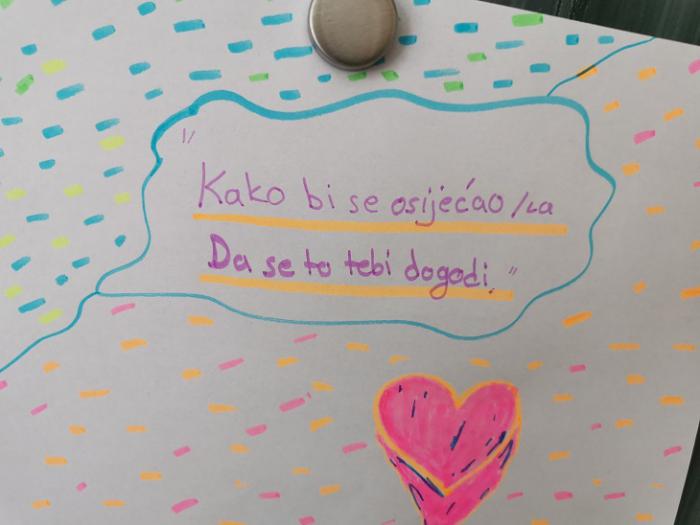 "Kako bi se osijećao/la
Da se to tebi dogodi."